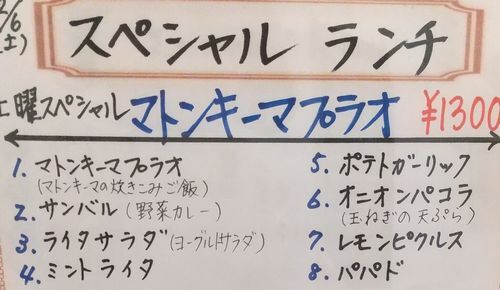 /6
(土)
スペシャル ランチ
土曜スペシャル マトンキーマプラオ ¥1300
1. マトンキーマプラオ
(マトンキーマの炊きこみご飯)
2. サンバル (野菜カレー)
3. ライタサラダ (ヨーグルトサラダ)
4. ミントライタ
5. ポテトガーリック
6. オニオンパコラ
(玉ねぎの天ぷら)
7. レモンピクルス
8. パパド